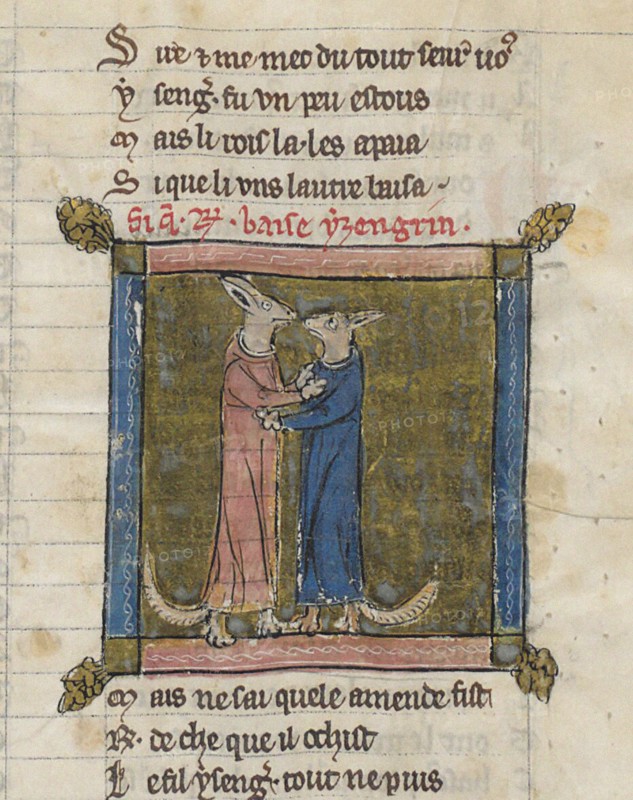 S ire & me mec du tout seur uos
ẏ seng̃. fu vn peu estous
M ais li rois la. les apaia
S i que li vns lautre baisa.
Si q̃. R. baise ẏzengrin.
M ais ne sai quele amende fist
R. de che que il ochist
L e fil ẏseng̃. tout ne puis
PHOTO12